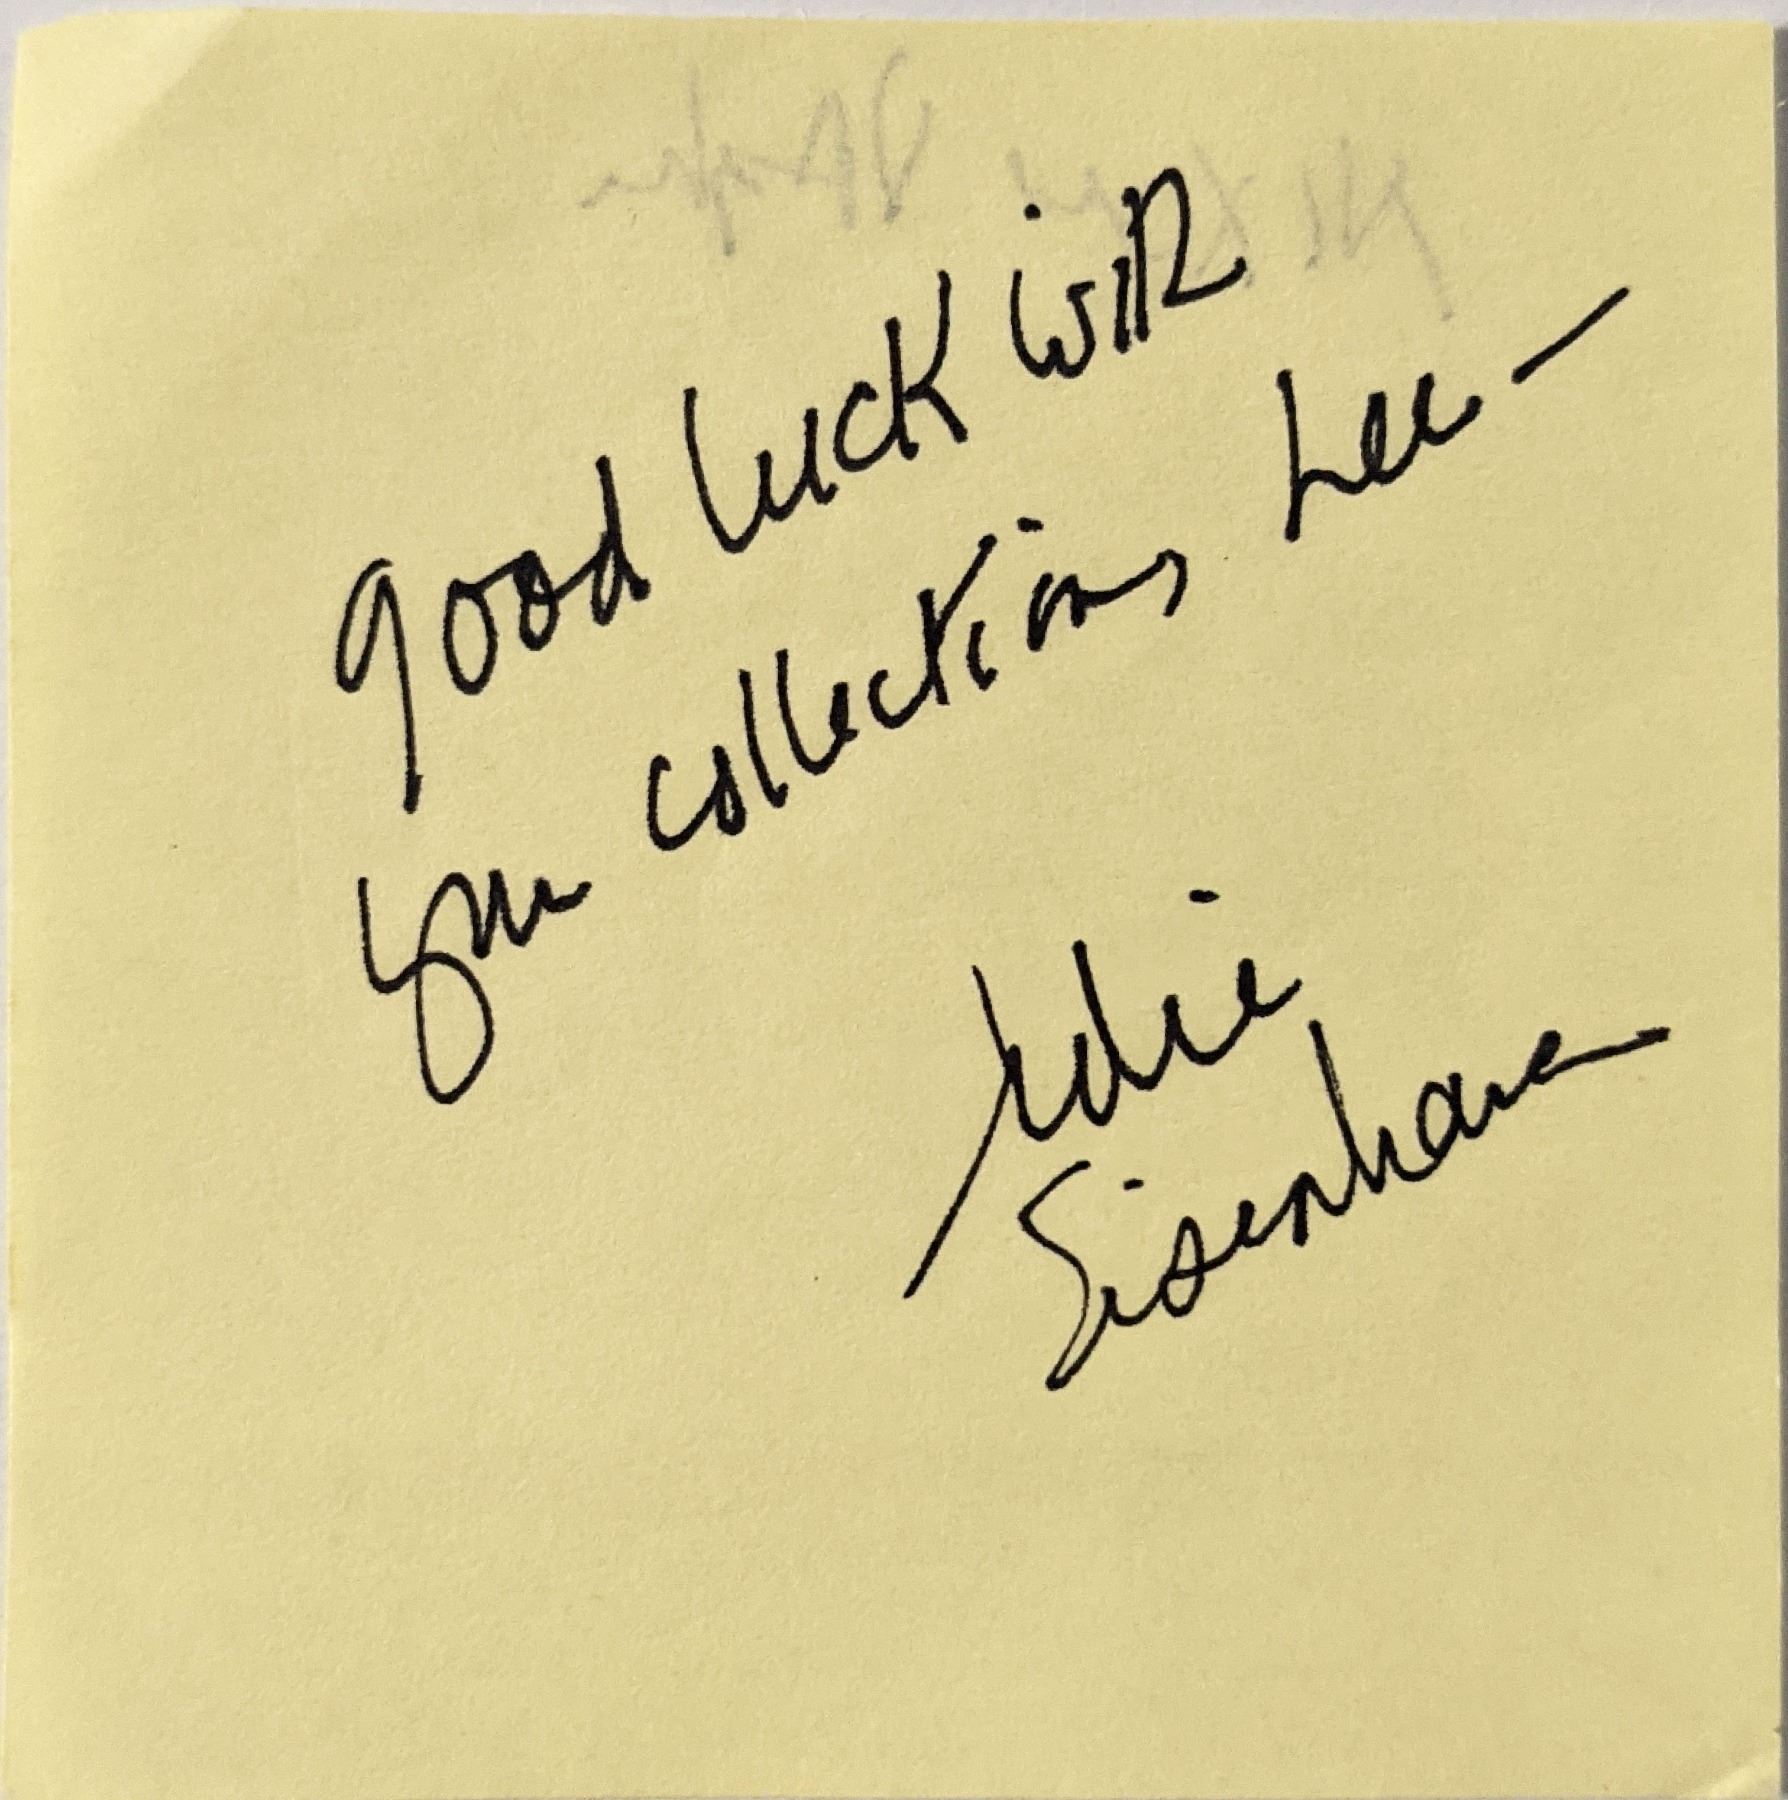 good luck with
your collections Lee –
Julie
Eisenhower